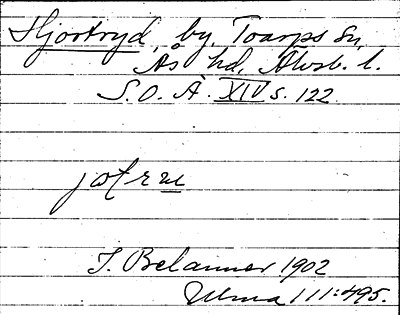 Hjortryd, by, Toarps sn,
Ås hd, Älvsb. l.
S.O.Ä. XIV s. 122
J. Belanner 1902
Ulma 111:495.